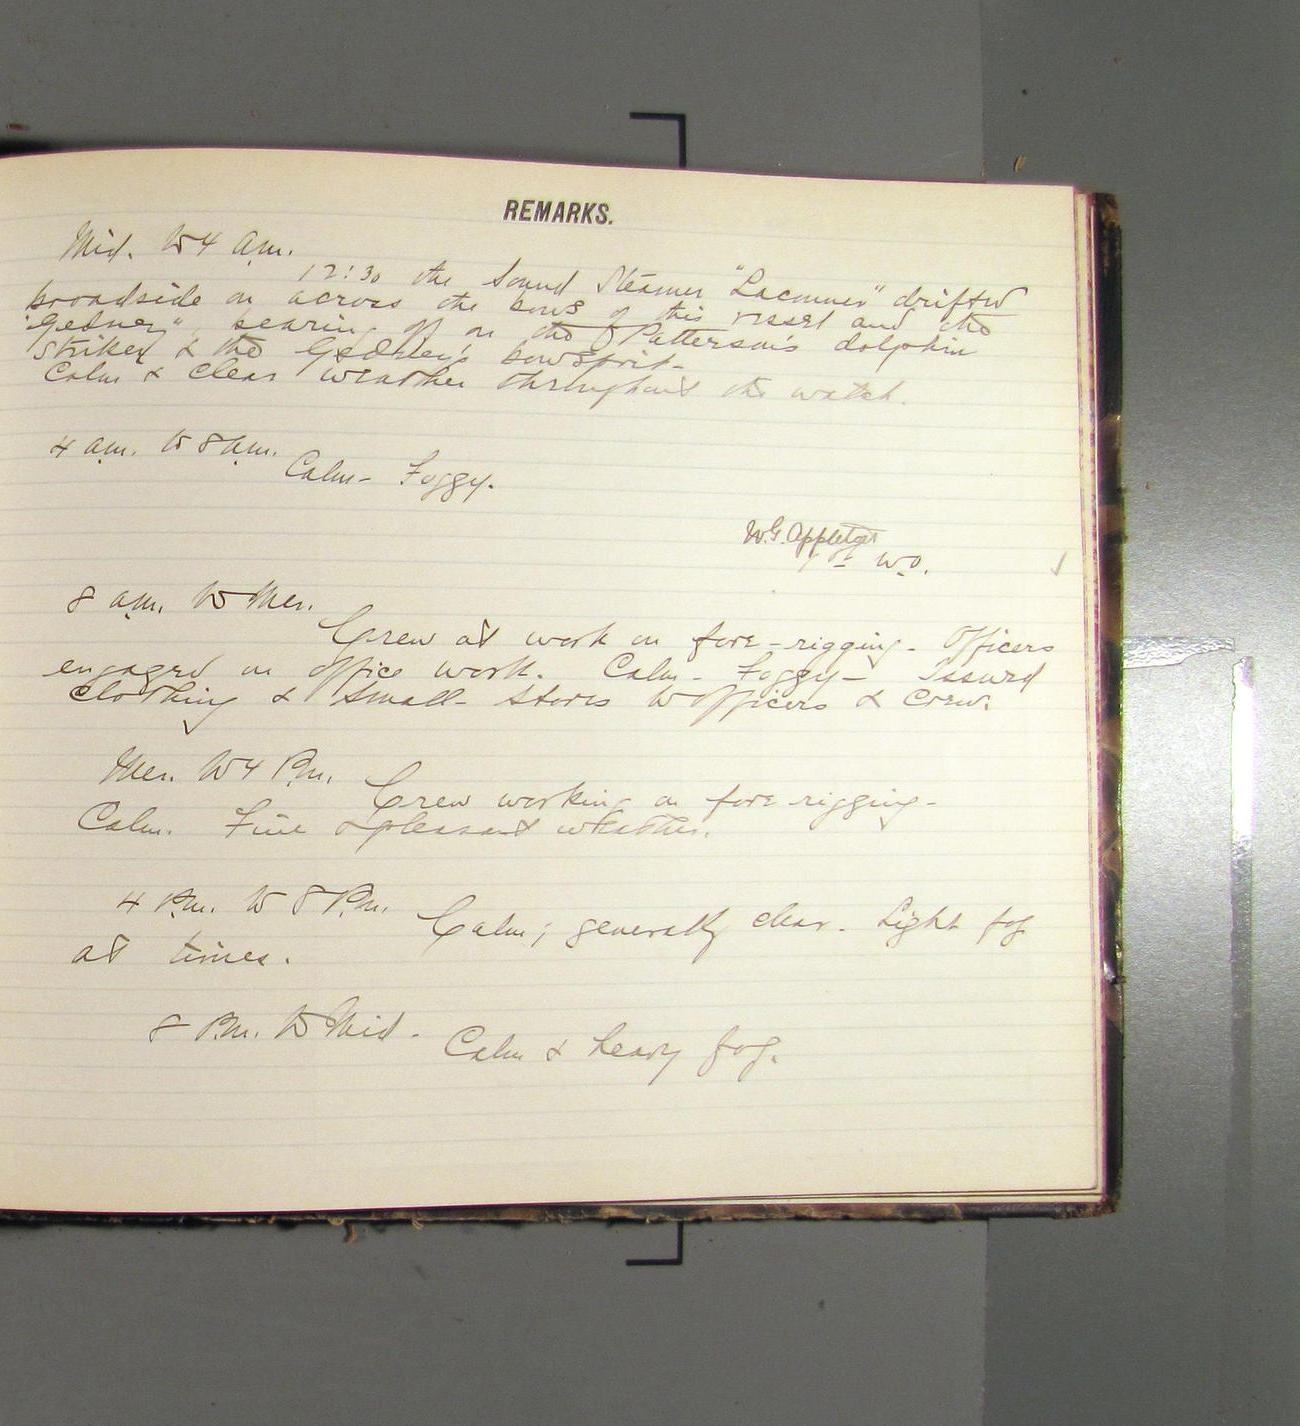 REMARKS.
Mid. to 4 a.m.
12:30 the Sound Steamer "Laconner" drifted
broadside on across the bows of this vessel and the
"Gedney", bearing off on the Patterson's dolphin
striker & the Gedney's bowsprit-
Calm & clear weather throughout the watch.
4 a.m. to 8 a.m.
Calm- Foggy.
W.G. Appleton
W.O.
8 a.m. to Mer.
Crew at work on fore-rigging. Officers
engaged on office work. Calm- Foggy- Issued
Clothing & Small-Stores to officers & crew.
Mer. to 4 P.m.
Crew working on fore rigging-
Calm. Fine & pleasant weather.
4 P.m. to 8 P.m.
Calm; generally clear. Light fog
at times.
8 P.m. to Mid.-
Calm & heavy fog.